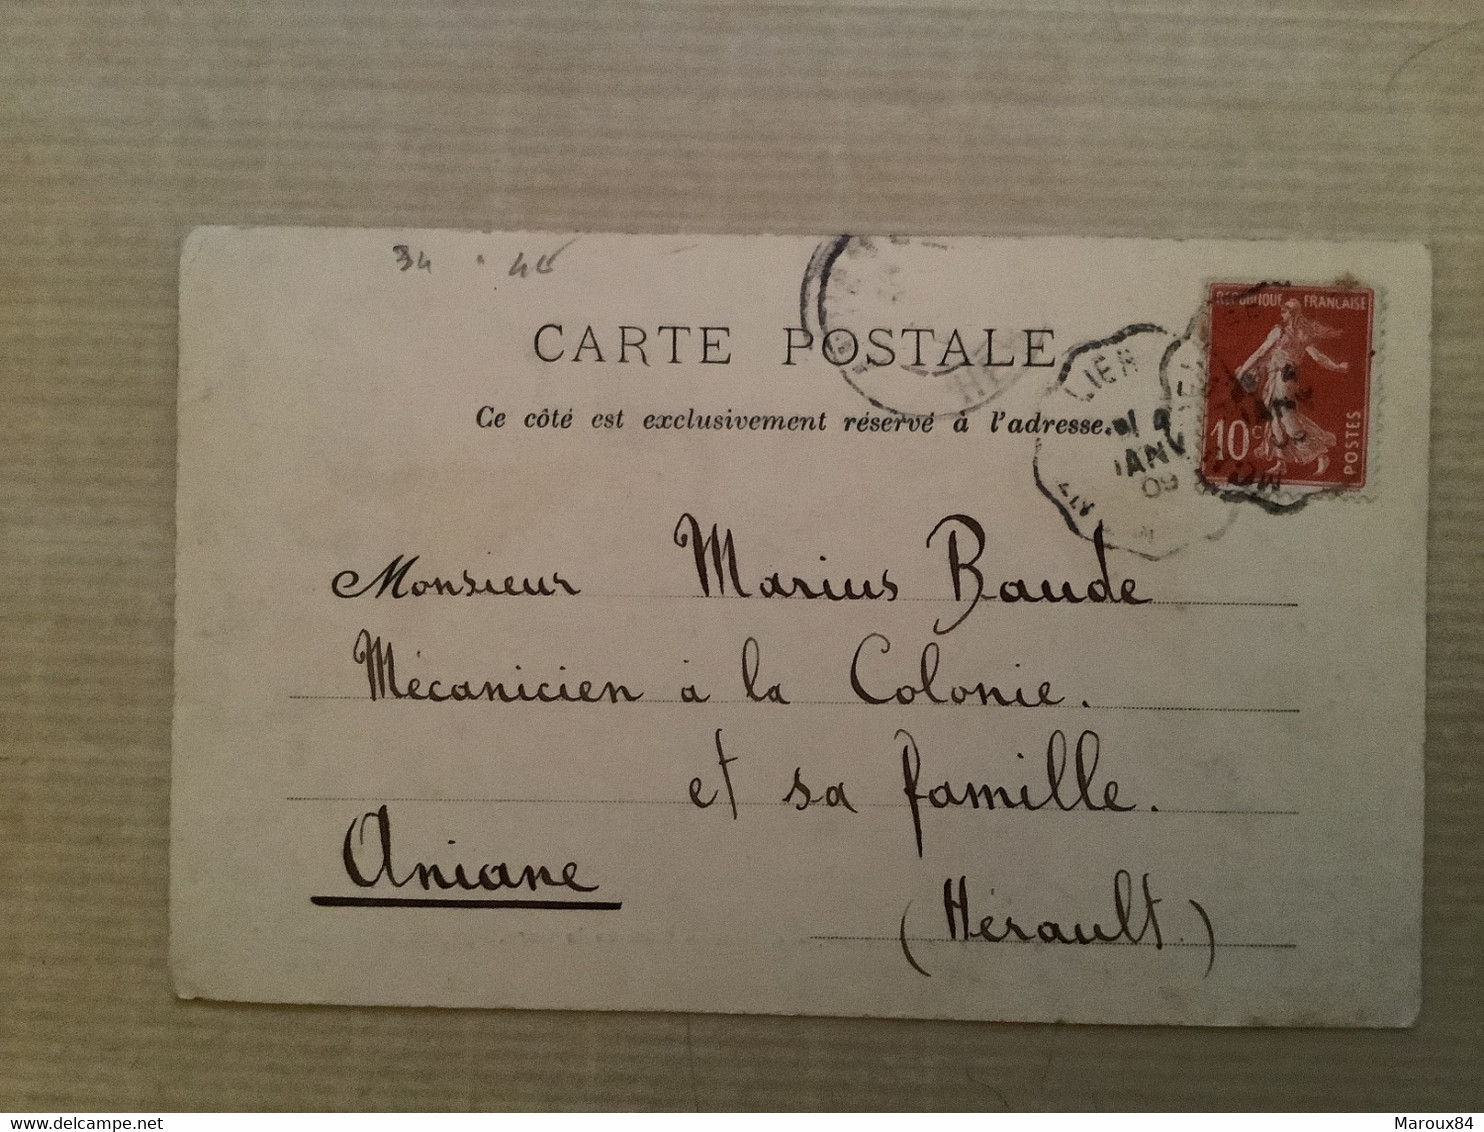 34 . 45
CARTE POSTALE
Ce côté est exclusivement réservé à l'adresse.
REPUBLIQUE FRANCAISE
10c
POSTES
LIER
JANV
09
Monsieur Marius Baude
Mécanicien à la Colonie.
et sa famille.
Aniane
(Hérault.)
www.delcampe.net
Maroux84